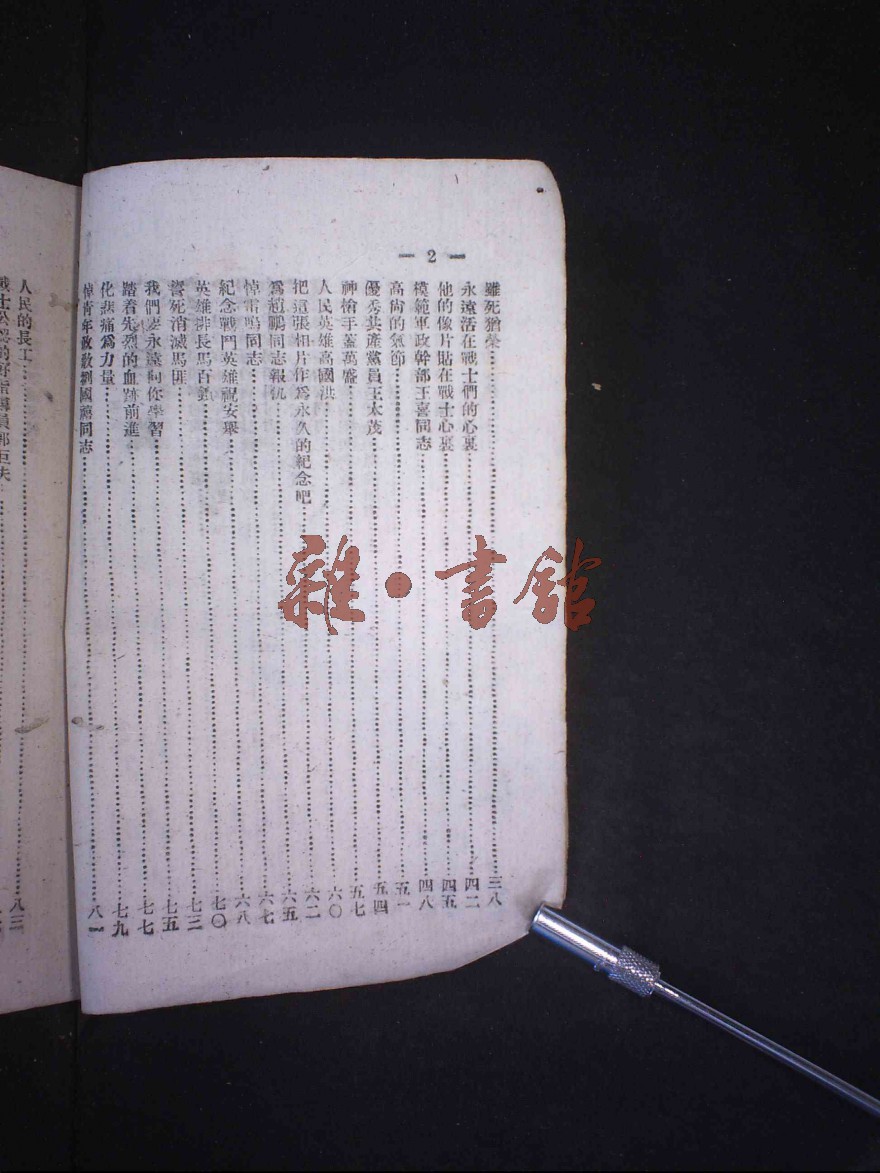 — 2 —
雖死猶榮 三八
永遠活在戰士們的心裏 四二
他的像片貼在戰士心裏 四五
模範軍政幹部王喜同志 四八
高尚的氣節 五一
優秀共產黨員王太茂 五四
神槍手蓋萬盛 五七
人民英雄高國洪 六〇
把這張相片作爲永久的紀念吧 六二
爲趙鵬同志報仇 六五
悼雷鳴同志 六七
紀念戰鬥英雄祝安舉 六八
英雄排長馬百 七〇
誓死消滅馬匪 七三
我們要永遠向你學習 七五
踏着先烈的血跡前進 七七
化悲痛爲力量 七九
悼青年政教劉國 同志 八一
人民的長工 八三
雜·書館